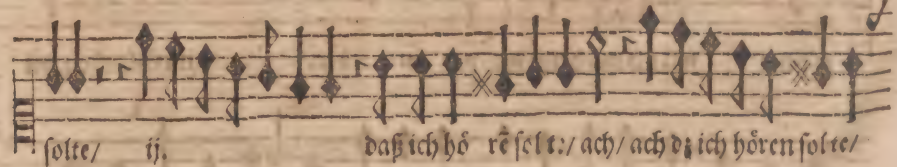 solte/ ij. daß ich hö rē solt:/ ach/ ach dz ich hören solte/